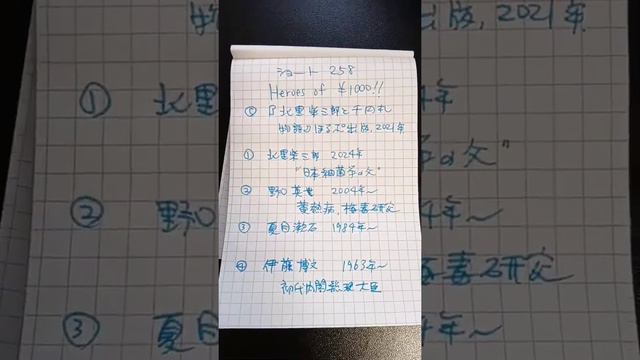 ショート 258
Heroes of ¥1000!!
⓪『北里柴三郎と千円札
物語』ほるぷ出版, 2021年
① 北里柴三郎 2024年
"日本細菌学の父"
② 野口英世 2004年～
黄熱病、梅毒研究
③ 夏目漱石 1984年～
④ 伊藤博文 1963年～
初代内閣総理大臣